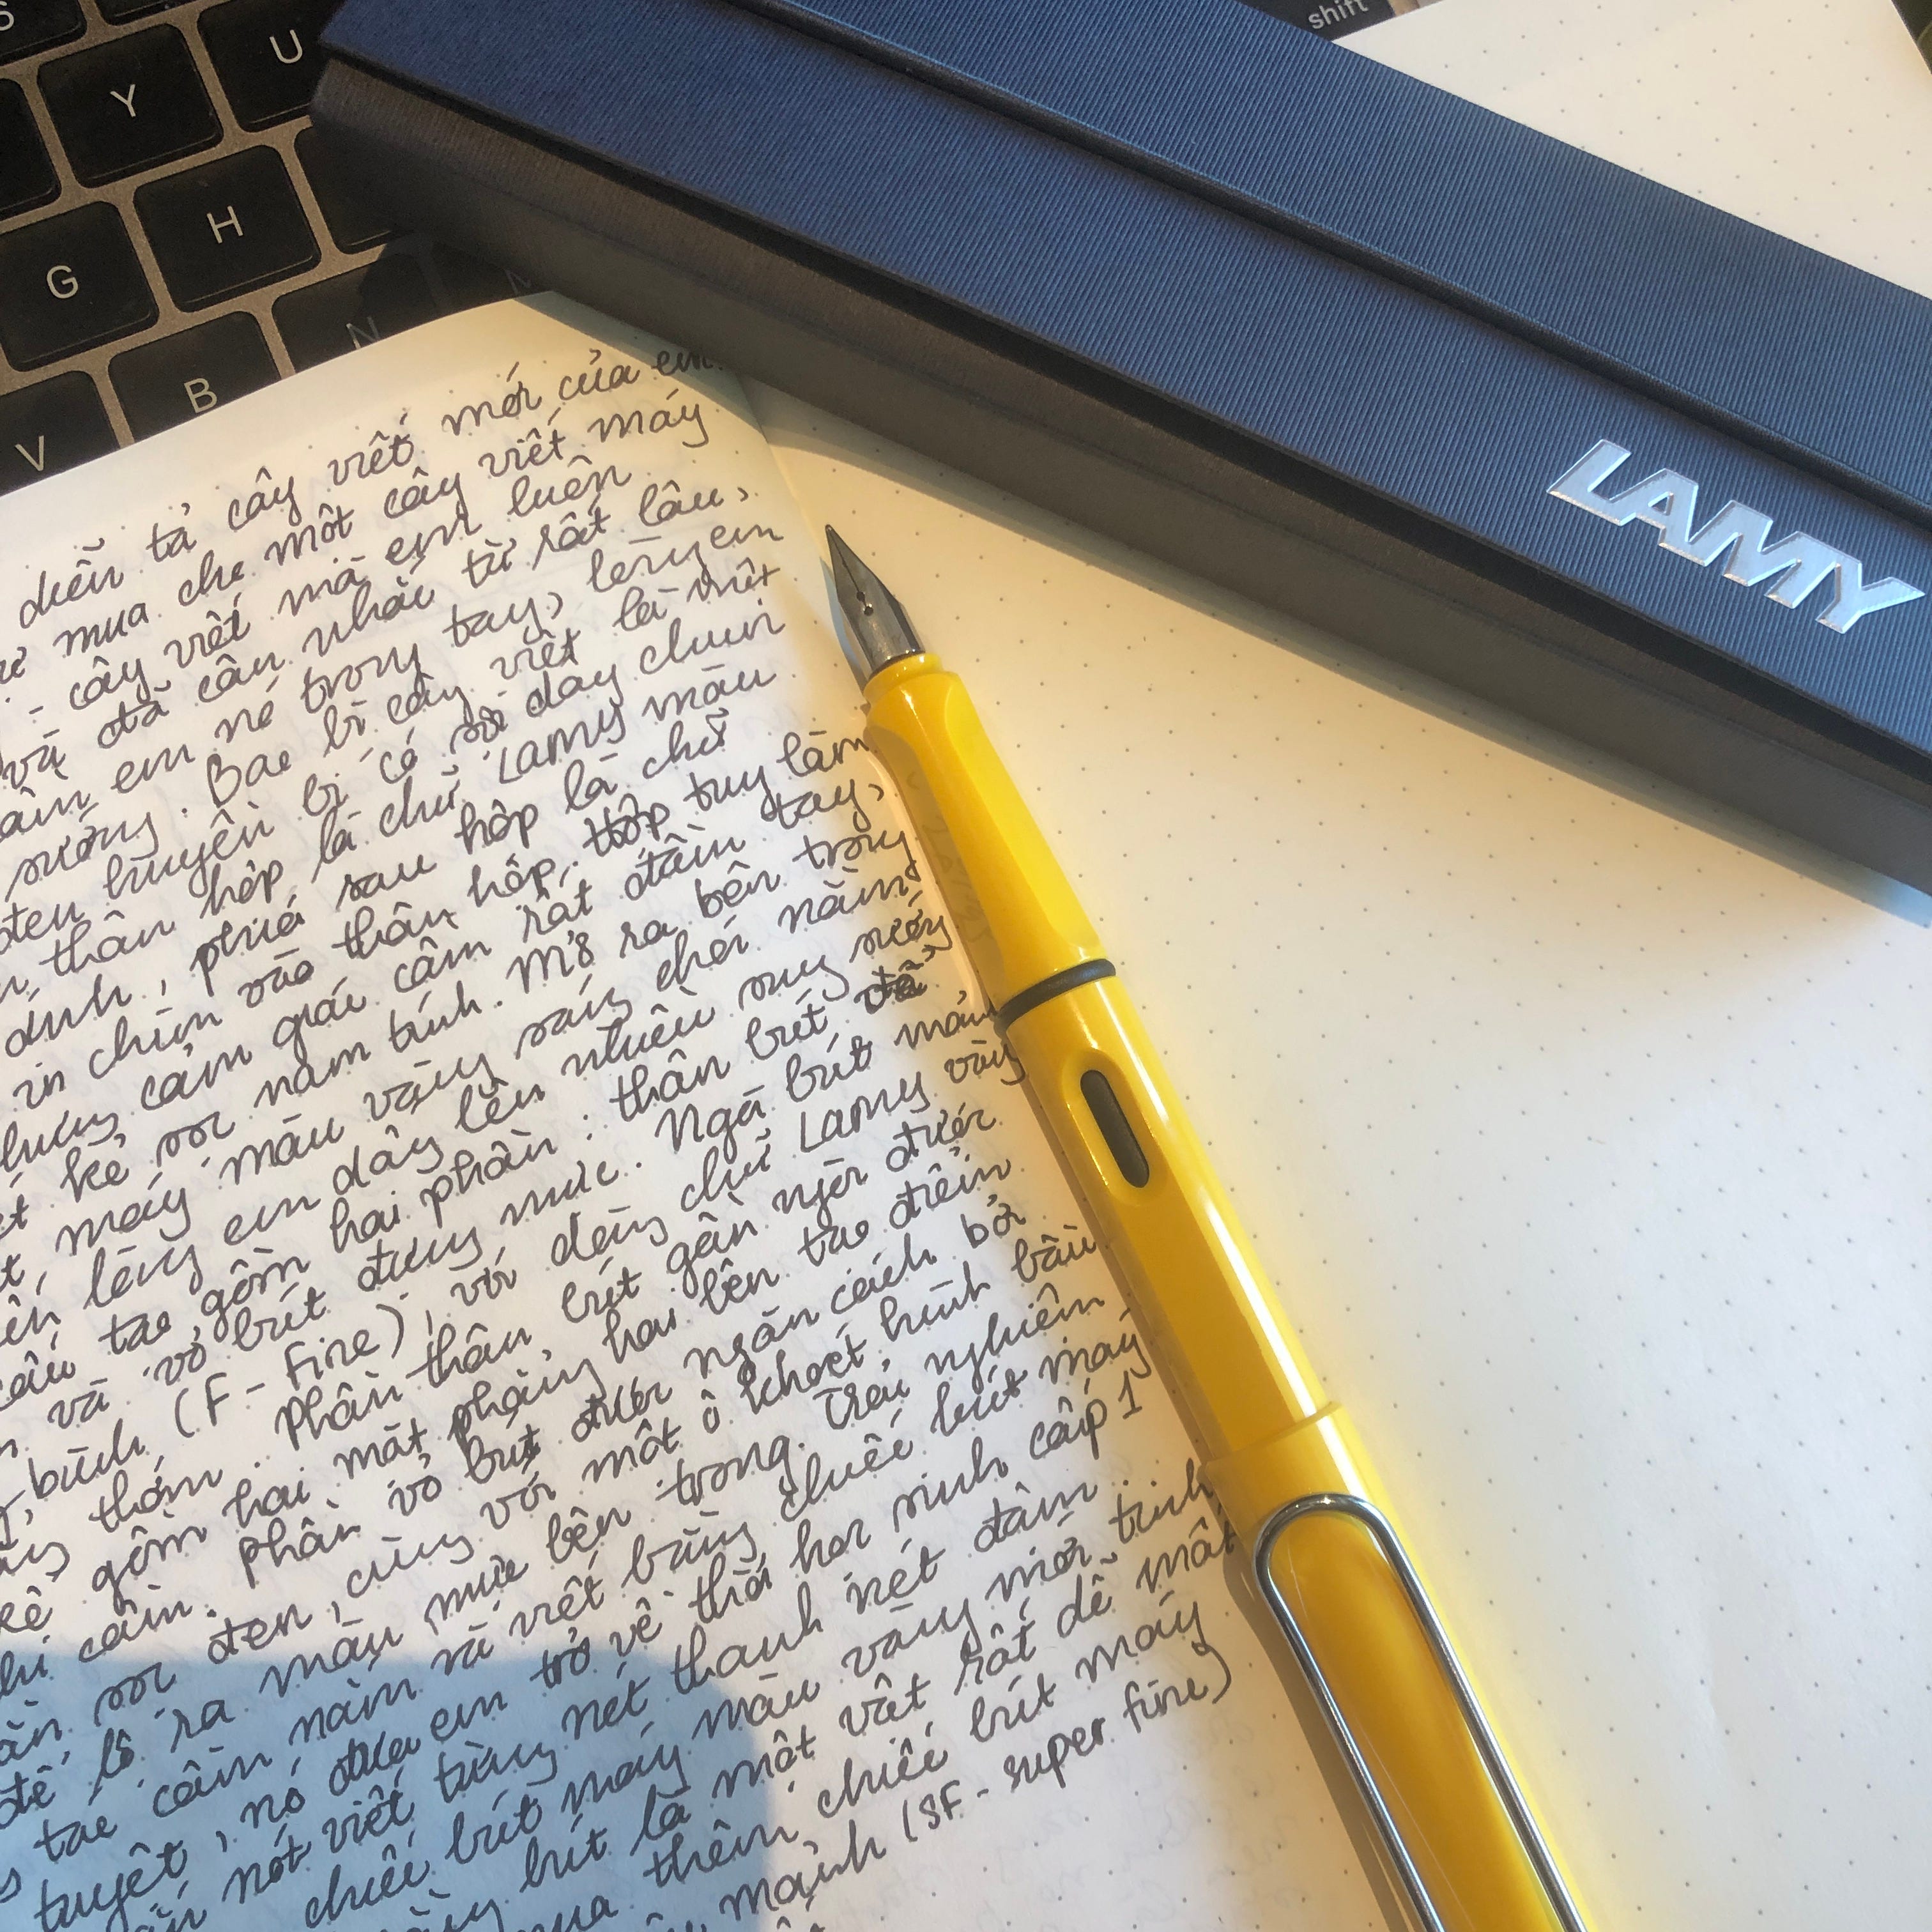 Y
U
shift
G
H
V
B
N
LAMY
diễn tả cây viết mới của em
mua cho một cây viết máy
- cây viết mà em luôn
và đã cân nhắc từ rất lâu,
em nó trong tay, lòng em
sướng. Bao bì cây viết là một
đen huyền bí có sợi dây chun
thân hộp là chữ LAMY màu
dính, phía sau hộp là chữ
in chìm vào thân hộp. Hộp tuy làm
cảm giác cầm rất đầm tay,
kế sọc nam tính. Mở ra bên trong
máy màu vàng sáng chói nằm
lòng em dâng lên nhiều sung sướng
cấu tạo gồm hai phần: thân bút
và vỏ bút đựng mực. Ngòi bút mảnh
bình (F-fine), với dòng chữ LAMY vàng
thớm. Phần thân bút gần ngòi được
kế gồm hai mặt phẳng hai bên tạo điểm
khi cầm. Phần vỏ bút được ngăn cách bởi
sọc đen, cùng với một ô khoét hình bầu
để lộ ra màu mực bên trong. Trải nghiệm
tạo cầm nắm và viết bằng chiếc bút máy
tuyệt, nó đưa em trở về thời học sinh cấp 1
nót viết từng nét thanh nét đậm.
chiếc bút máy màu vàng mới tinh
bút là một vật rất dễ mất
mua thêm chiếc bút máy
mảnh (SF-super fine)